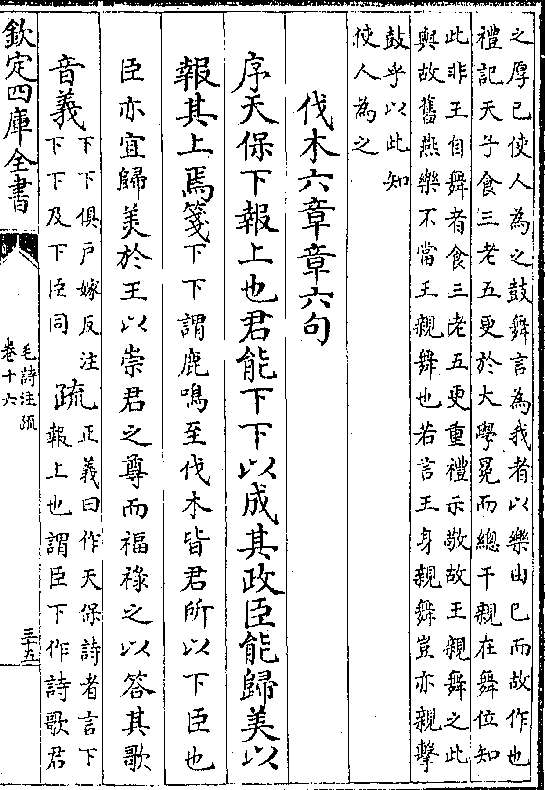 之厚已使人為之鼓舞言為我者以樂由已而故作也
禮記天子食三老五更於大學冕而總干親在舞位知
此非王自舞者食三老五更重禮示敬故王親舞之此
與故舊燕樂不當王親舞也若言王身親舞豈亦親擊
鼓乎以此知
使人為之
伐木六章章六句
序天保下報上也君能下下以成其政臣能歸美以
報其上焉箋下下謂鹿鳴至伐木皆君所以下臣也
臣亦宜歸美於王以崇君之尊而福祿之以答其歌
音義下下俱戶嫁反注
下下及下臣同
疏正義曰作天保詩者言下
報上也謂臣下作詩歌君
欽定四庫全書
毛詩注疏
卷十六
三十五